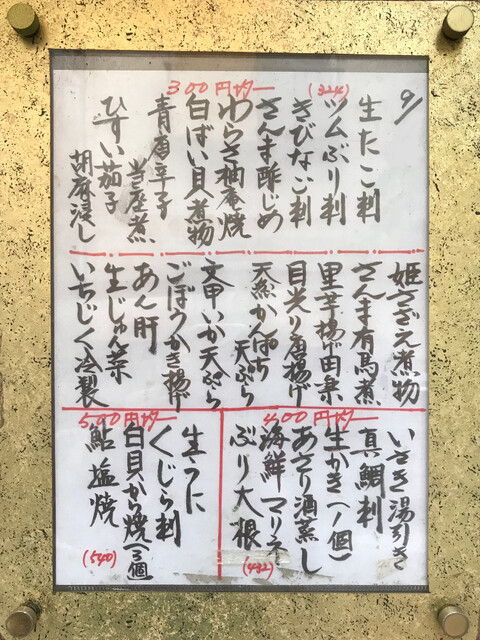 9/
300円均一 (324)
生たこ刺
ツムぶり刺
きびなご刺
さんま酢じめ
わらさ柚庵焼
白ばい貝煮物
青唐辛子
当座煮
ひすい茄子
胡麻浸し
姫さざえ煮物
さんま有馬煮
里芋揚げ田楽
目光り唐揚げ
天然かんぱち
天ぷら
文甲いか天ぷら
ごぼうかき揚げ
あん肝
生じゅん菜
いちじく冷製
400円均一
いさき湯引き
真鯛刺
生かき(1個)
あさり酒蒸し
海鮮マリネ
ぶり大根
(432)
500円均一
生うに
くじら刺
白貝から焼(3個)
鮎塩焼
(540)